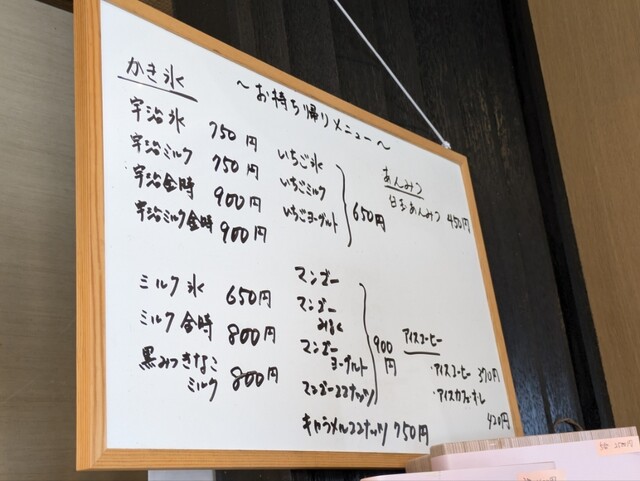 ～お持ち帰りメニュー～
かき氷
宇治氷 750円
宇治ミルク 750円
宇治金時 900円
宇治ミルク金時 900円
いちご氷
いちごミルク
いちごヨーグルト
650円
ミルク氷 650円
ミルク金時 800円
黒みつきなこ
ミルク 800円
マンゴー
マンゴー
みるく
マンゴー
ヨーグルト
マンゴーココナッツ
900
円
キャラメルココナッツ 750円
あんみつ
白玉あんみつ 450円
アイスコーヒー
・アイスコーヒー 370円
・アイスカフェオレ
420円